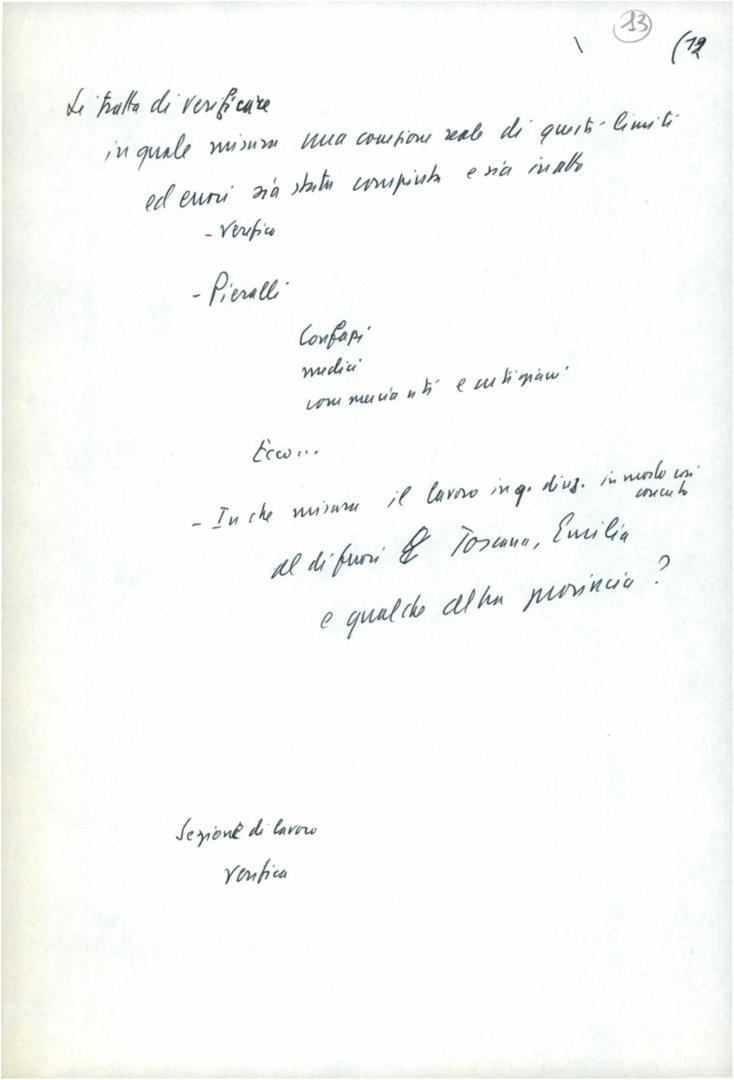 13
(12
Si tratta di verificare
in quale misura una correzione reale di questi limiti
ed errori sia stata compiuta e sia in atto
- Verifica
- Pieralli
Confapi
medici
commercianti e artigiani
Ecco...
- In che misura il lavoro in q. direz. in modo così
concreto
al di fuori Toscana, Emilia
e qualche altra provincia?
Sezione di lavoro
Verifica